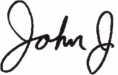 John J